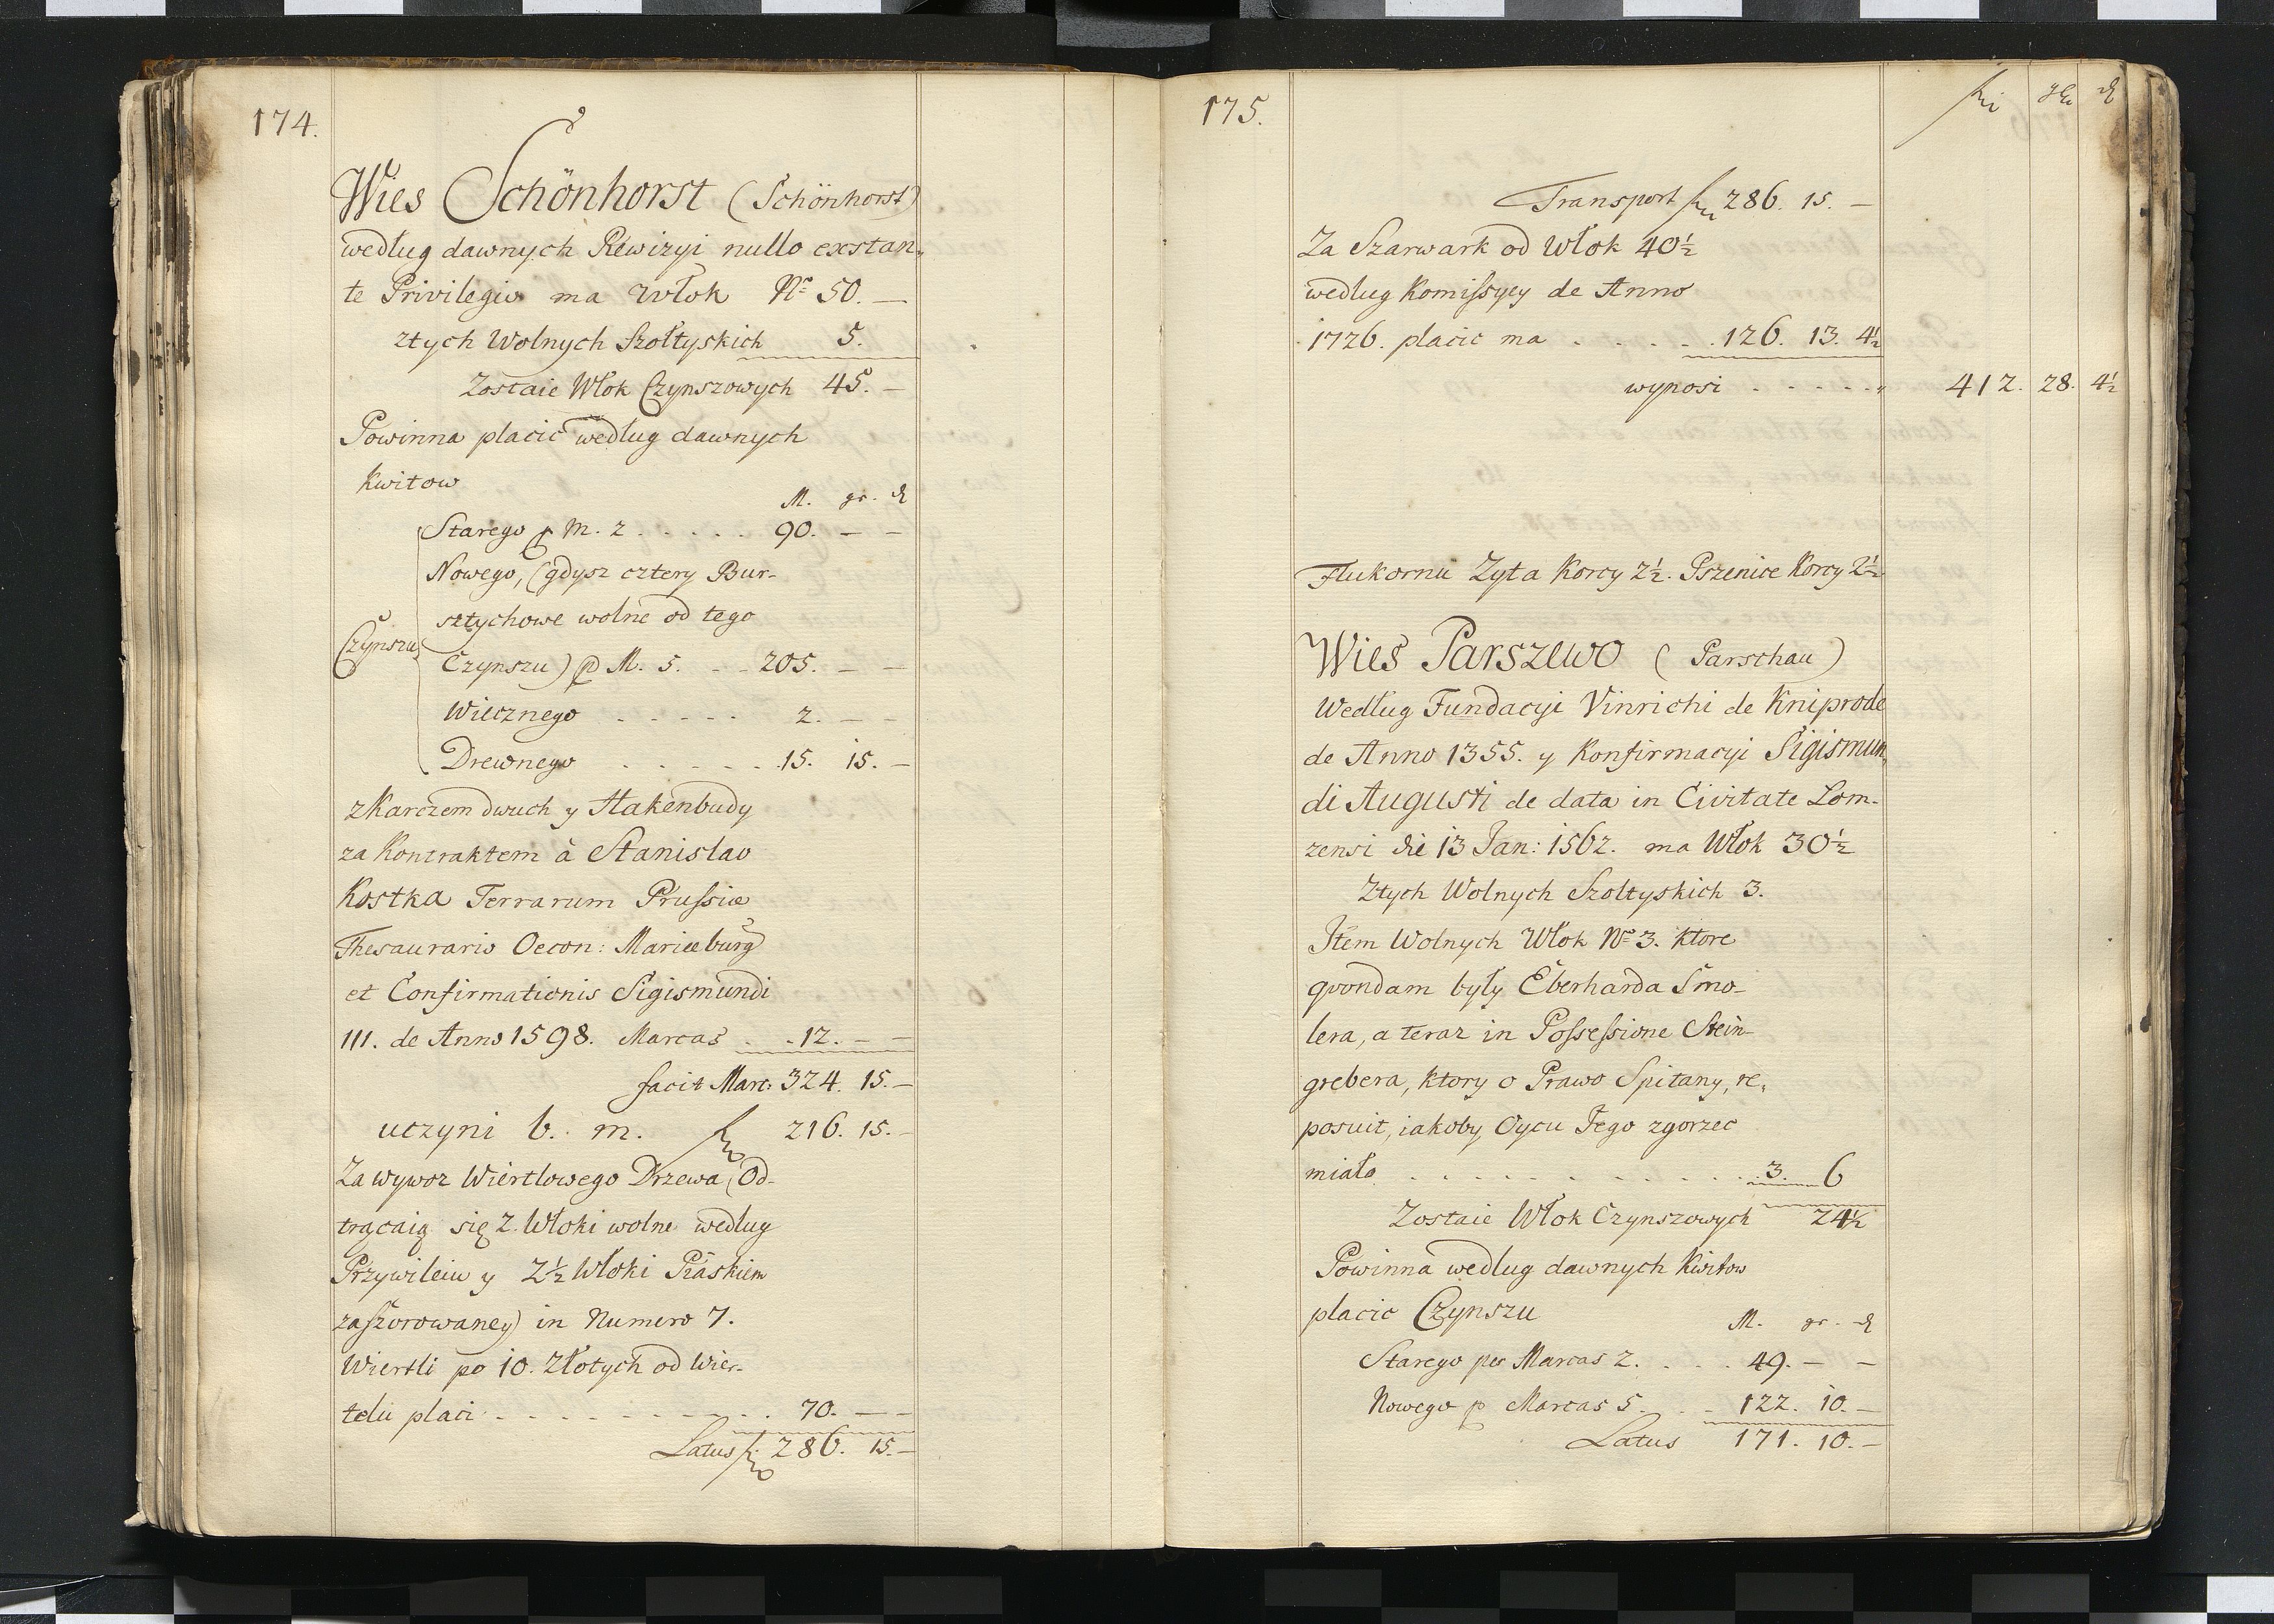 174.
Wies Schönhorst (Schönhorst)
według dawnych Rewizyi nullo exstan„
te Privilegio ma Włok No 50. —
ztych Wolnych Szołtyskich 5.
Zostaie Włok Czynszowych 45. —
Powinna placic według dawnych
Kwitow
M. gr. ₰
Starego p M. 2 . . . . . 90. — —
Nowego, (gdysz cztery Bur-
sztychowe wolne od tego
Czynszu) p M. 5. . . 205. — —
Czynszu
Wiecznego . . . . . 2. — —
Drewnego . . . . . . 15. 15. —
z Karczem dwuch y Hakenbudy
za Kontraktem à Stanislao
Kostka Terrarum Prussiæ
Thesaurario Oecon: Mariæburg
et Confirmationis Sigismundi
III. de Anno 1598. Marcas . . 12. — —
facit Marc: 324. 15. —
uczyni b. m. 216. 15. —
Za wywoz Wiertlowego Drzewa (Od-
trącaią się 2. Włoki wolne według
Przywileiu y 2½ Włoki Piaskiem
zaszorowaney) in Numero 7.
Wiertli po 10. Złotych od Wier-
telu placi . . . . . . . . . 70. — —
Latus 286. 15. —
175.
Transport 286. 15. —
Za Szarwark od Włok 40½
według Komissyey de Anno
1726. placic ma . . . . . 126. 13. 4½
wynosi . . . . . „ 412. 28. 4½
Flukornu Zyta Korcy 2½. Pszenice Korcy 2½.
Wies Parszewo (Parschau)
Według Fundacyi Vinrichi de Kniprode
de Anno 1355. y Konfirmacyi Sigismun„
di Augusti de data in Civitate Lom-
zensi die 13 Jan: 1562. ma Włok 30½
Ztych Wolnych Szoltyskich 3.
Item Wolnych Włok No 3. Ktore
qvondam były Eberharda Smo-
lera, a teraz in Possessione Stein-
grebera, Ktory o Prawo Spitany, re„
posuit, iakoby Oycu Jego zgorzec
miało . . . . . . . . . . 3. 6
Zostaie Włok Czynszowych 24½
Powinna według dawnych Kwitow
placic Czynszu
M. gr. ₰
Starego per Marcas 2. . . . 49. — —
Nowego p Marcas 5. . . 122. 10. —
Latus 171. 10. —